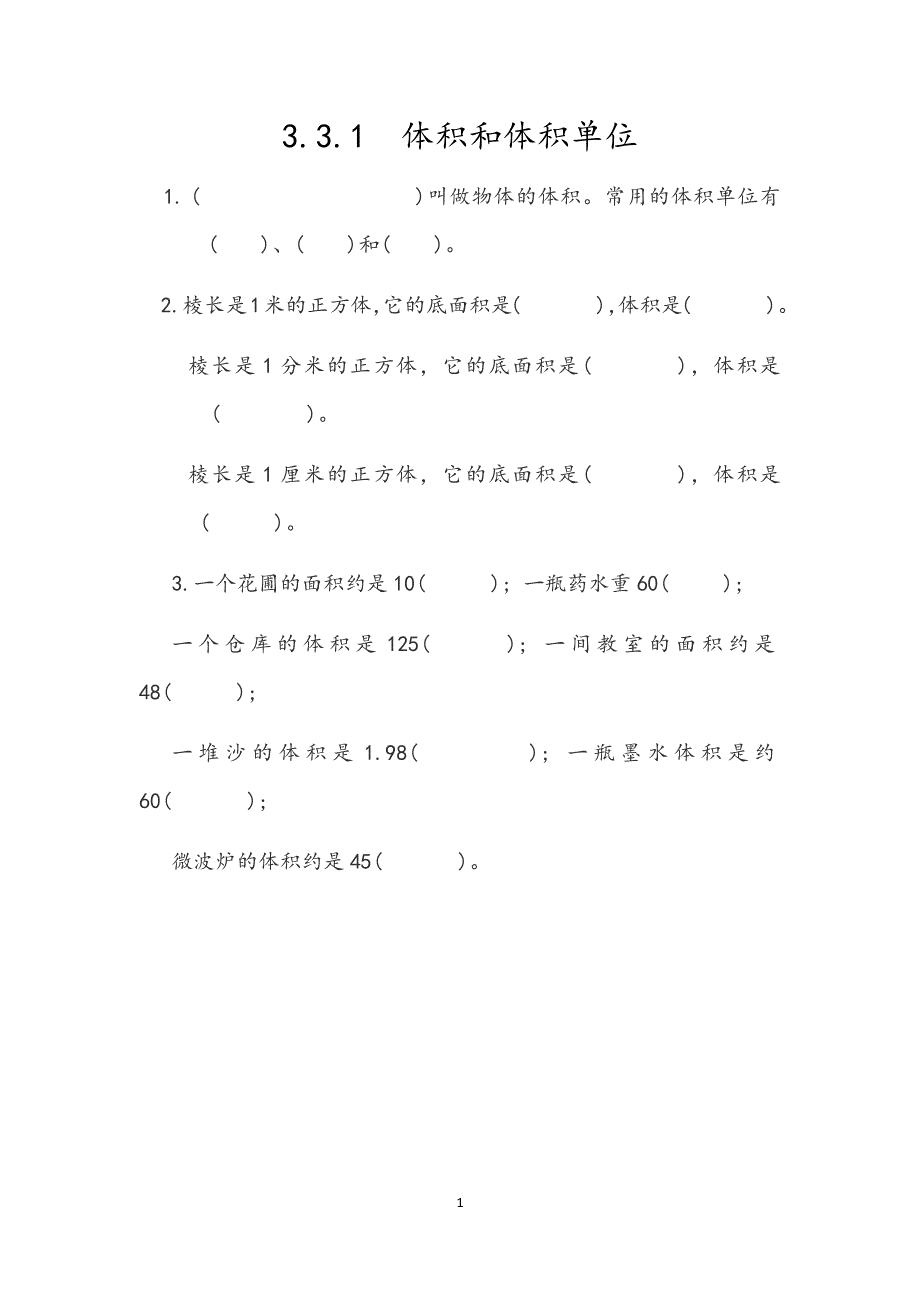 3.3.1  体积和体积单位
1.(                    )叫做物体的体积。常用的体积单位有
(    )、(    )和(    )。
2.棱长是1米的正方体,它的底面积是(       ),体积是(       )。
棱长是1分米的正方体，它的底面积是(        )，体积是
(        )。
棱长是1厘米的正方体，它的底面积是(        )，体积是
(      )。
3.一个花圃的面积约是10(      )；一瓶药水重60(     )；
一个仓库的体积是125(       )；一间教室的面积约是
48(      )；
一堆沙的体积是1.98(          )；一瓶墨水体积是约
60(       )；
微波炉的体积约是45(       )。
1